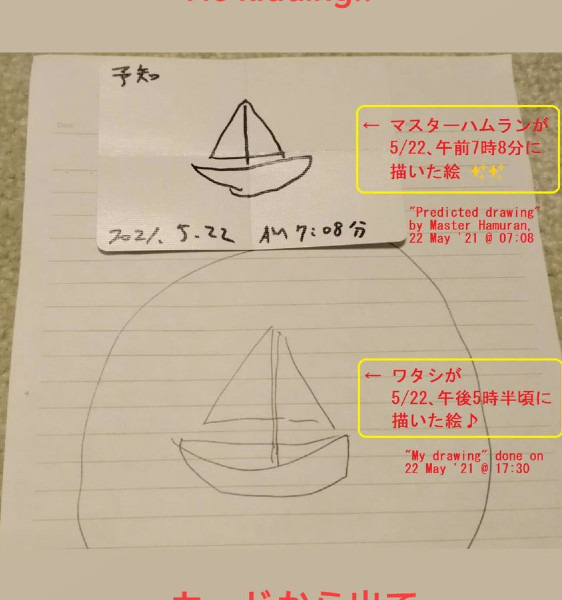 予知
← マスターハムランが
5/22、午前7時8分に
描いた絵 ✨✨
"Predicted drawing"
by Master Hamuran,
22 May '21 @ 07:08
2021. 5.22 AM 7:08分
← ワタシが
5/22、午後5時半頃に
描いた絵♪
"My drawing" done on
22 May '21 @ 17:30